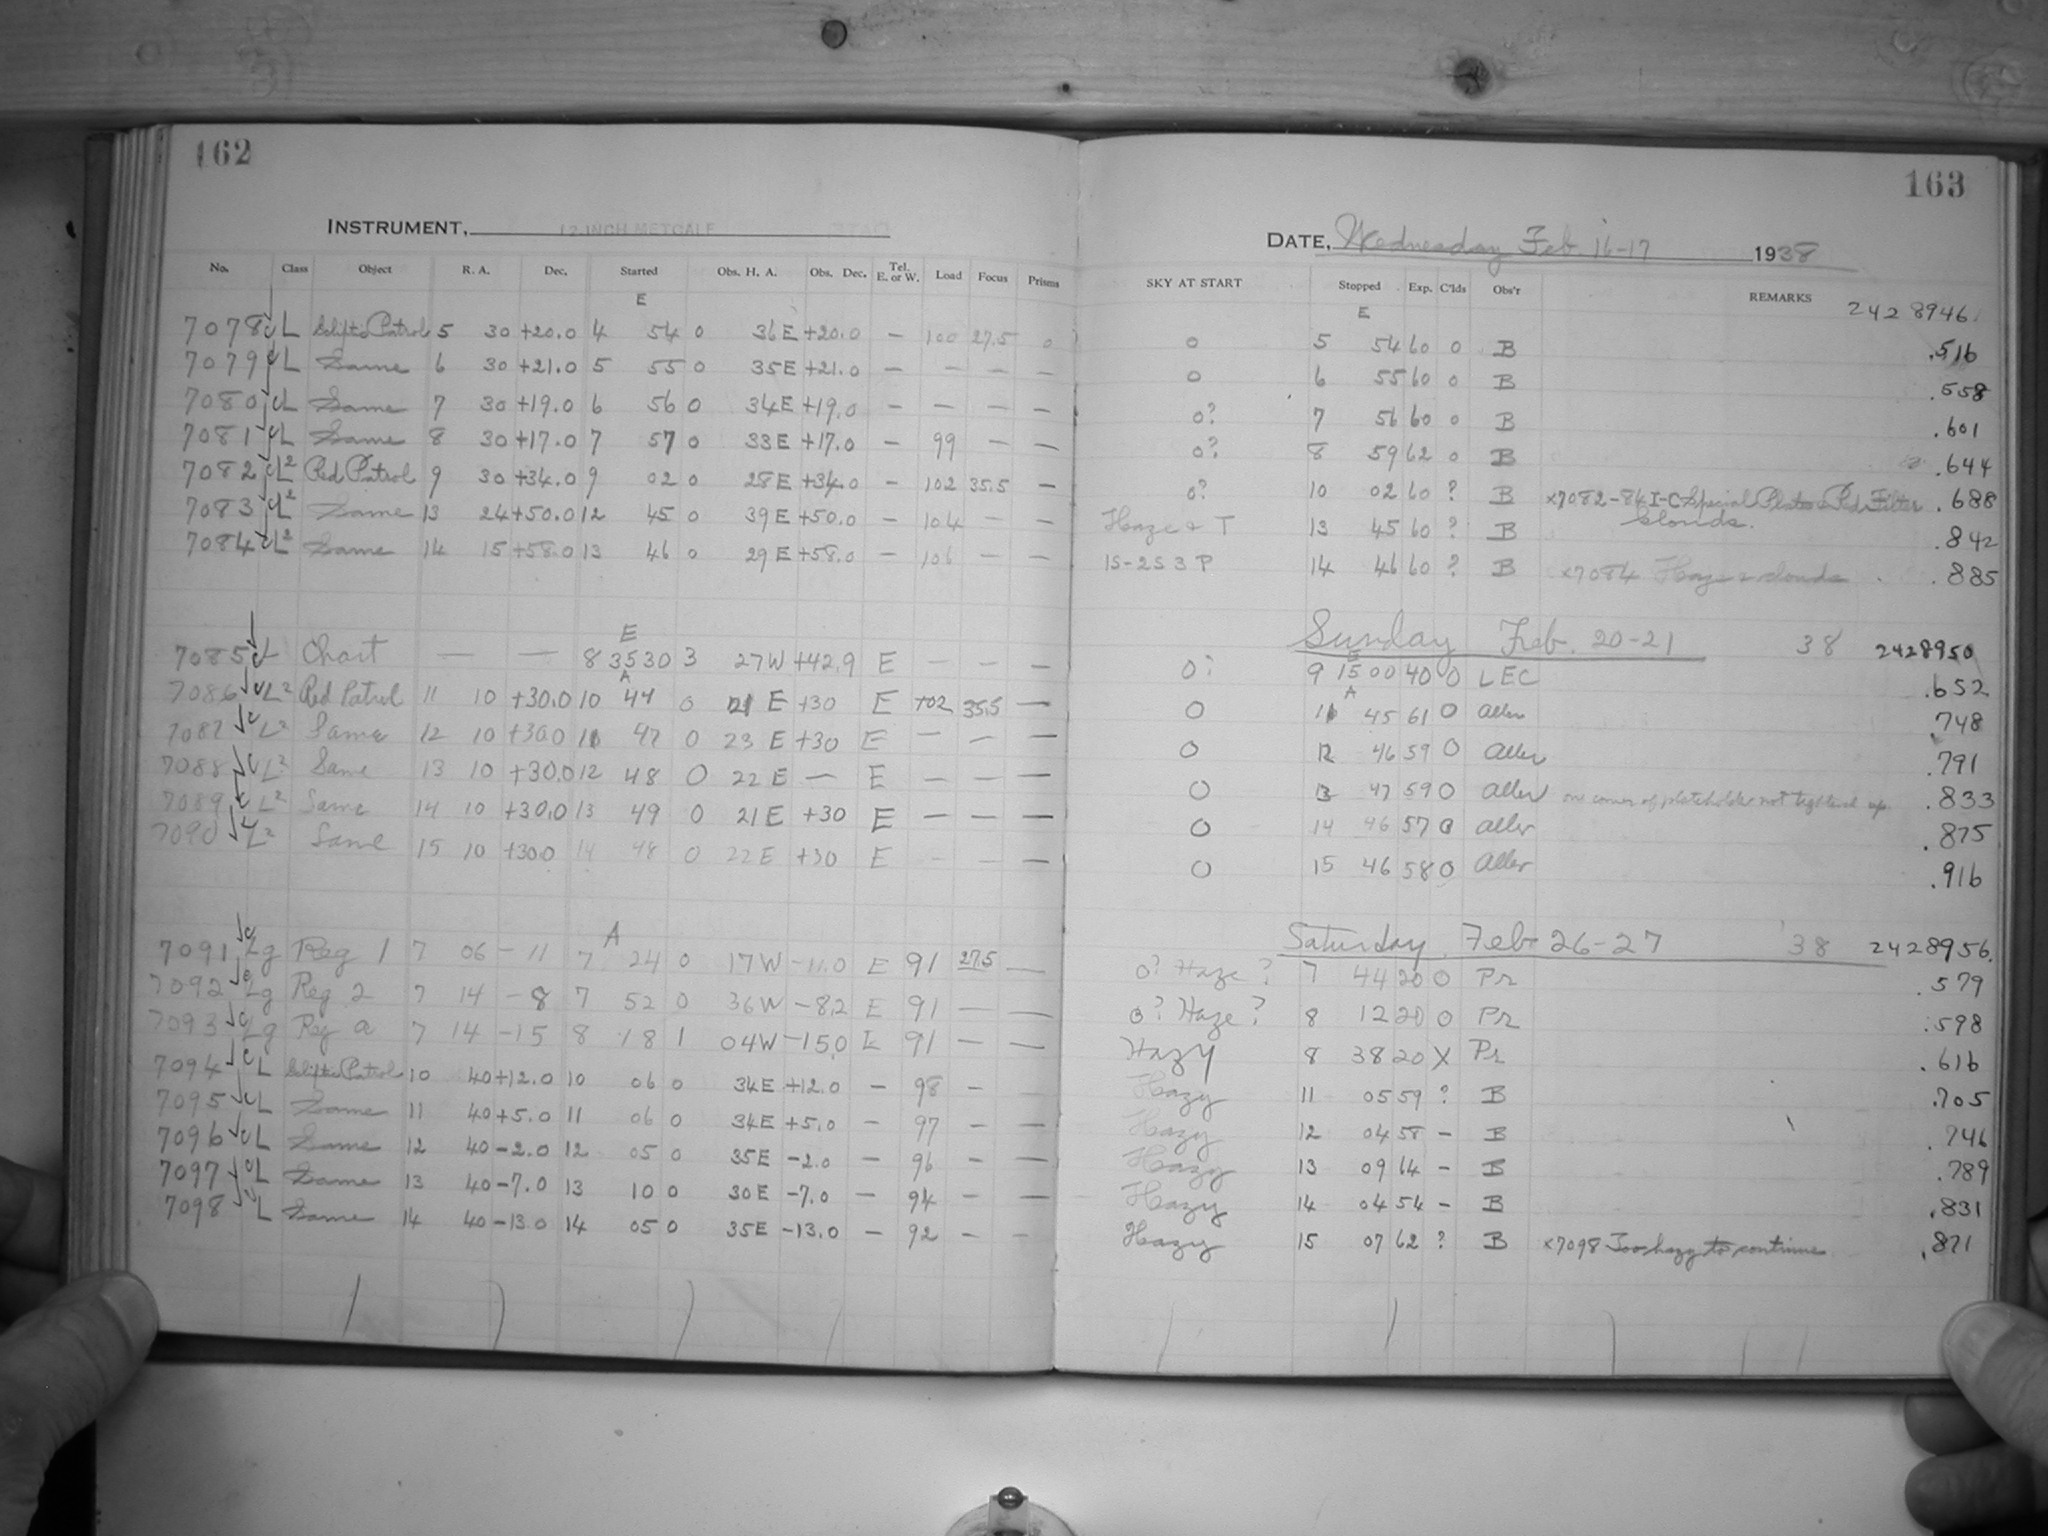 162
INSTRUMENT, 12 INCH METCALF
No. Class Object R. A. Dec. Started Obs. H. A. Obs. Dec. Tel. E. or W. Load Focus Prisms
E
7078 L Ecliptic Patrol 5 30 +20.0 4 54 0 36 E +20.0 — 100 27.5 0
7079 L Same 6 30 +21.0 5 55 0 35E +21.0 — — — —
7080 L Same 7 30 +19.0 6 56 0 34E +19.0 — — — —
7081 L Same 8 30 +17.0 7 57 0 33E +17.0 — 99 — —
7082 L² Red Patrol 9 30 +34.0 9 02 0 28E +34.0 — 102 35.5 —
7083 L² Same 13 24 +50.0 12 45 0 39E +50.0 — 104 — —
7084 L² Same 14 15 +58.0 13 46 0 29E +58.0 — 106 — —
E
7085 L Chart — — 8 35 30 3 27W +42.9 E — — —
A
7086 L² Red Patrol 11 10 +30.0 10 44 0 21 E +30 E 102 35.5 —
7087 L² Same 12 10 +30.0 11 47 0 23 E +30 E — — —
7088 L² Same 13 10 +30.0 12 48 0 22 E — E — — —
7089 L² Same 14 10 +30.0 13 49 0 21 E +30 E — — —
7090 L² Same 15 10 +30.0 14 48 0 22 E +30 E — — —
A
7091 Lg Reg 1 7 06 -11 7 24 0 17W -11.0 E 91 27.5 —
7092 Lg Reg 2 7 14 -8 7 52 0 36W -8.2 E 91 — —
7093 Lg Reg a 7 14 -15 8 18 1 04W -15.0 E 91 — —
7094 L Ecliptic Patrol 10 40 +12.0 10 06 0 34E +12.0 — 98 —
7095 L Same 11 40 +5.0 11 06 0 34E +5.0 — 97 — —
7096 L Same 12 40 -2.0 12 05 0 35E -2.0 — 96 — —
7097 L Same 13 40 -7.0 13 10 0 30E -7.0 — 94 — —
7098 L Same 14 40 -13.0 14 05 0 35E -13.0 — 92 — —
163
DATE, Wednesday Feb 16-17 1938
SKY AT START Stopped Exp. C'lds Obs'r REMARKS
E 2428946
0 5 54 60 0 B .516
0 6 55 60 0 B .558
0? 7 56 60 0 B .601
0? 8 59 62 0 B .644
0? 10 02 60 ? B x7082-84 I-C Special Plates Red Filter .688
clouds.
Haze & T 13 45 60 ? B .842
15-253 P 14 46 60 ? B x7084 Haze & clouds .885
Sunday Feb. 20-21 38 2428950
E
0? 9 15 00 40 0 LEC .652
A
0 11 45 61 0 Aller .748
0 12 46 59 0 Aller .791
0 13 47 59 0 Aller one corner of plateholder not tightened up. .833
0 14 46 57 0 Aller .875
0 15 46 58 0 Aller .916
Saturday Feb 26-27 38 2428956.
0? Haze? 7 44 20 0 Pr .579
0? Haze? 8 12 20 0 Pr .598
Hazy 8 38 20 X Pr .616
Hazy 11 05 59 ? B .705
Hazy 12 04 58 — B .746
Hazy 13 09 64 — B .789
Hazy 14 04 54 — B .831
Hazy 15 07 62 ? B x7098 Too hazy to continue .871